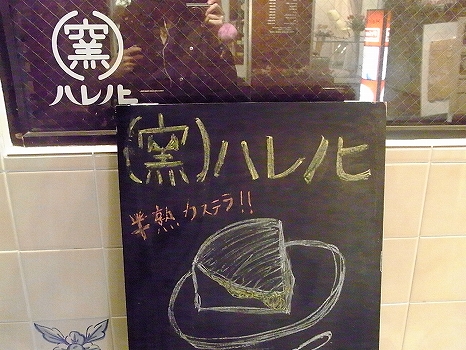 (窯)
ハレノヒ
(窯)ハレノヒ
半熟カステラ!!